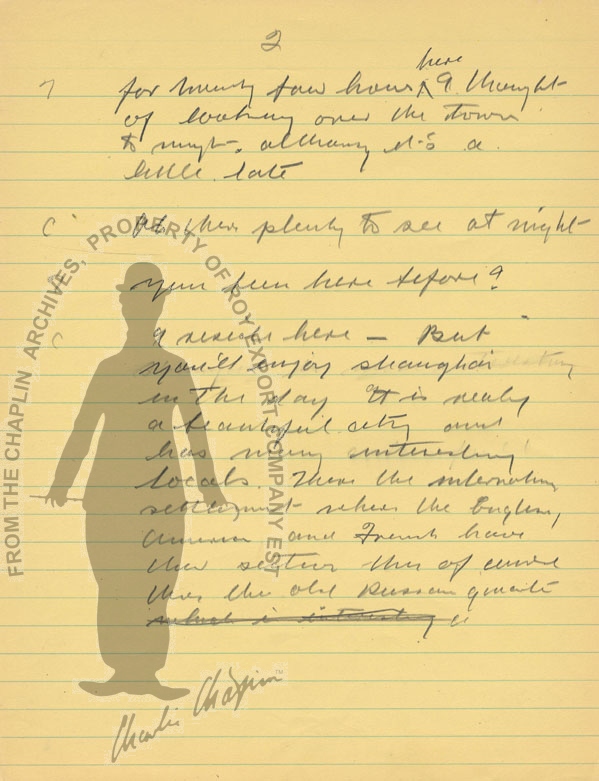 2
7 for twenty four hours here I thought
of looking over the town
to night. althoug it's a
little late
C Oh there plenty to see at night
you been here before?
I reside here — But
you'll enjoy shanghai
in the day It is really
a beautiful city and
has many interesting
locals. Theres the internation
settlement where the English,
American and French have
their section then of course
theres the old Russian quarte
which is interesting
FROM THE CHAPLIN ARCHIVES, PROPERTY OF ROY EXPORT COMPANY EST
Charlie Chaplin™